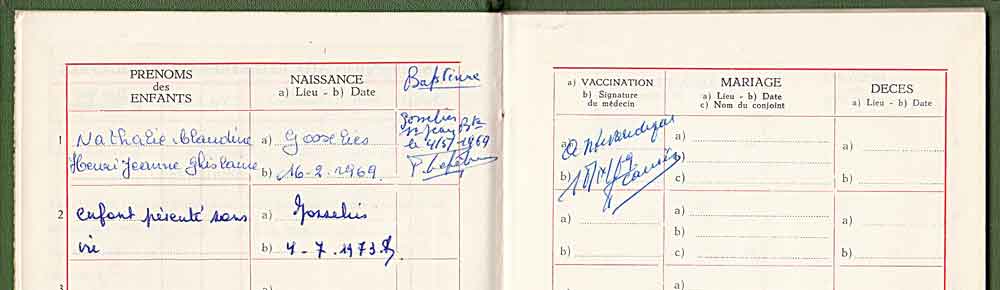 PRENOMS
des
ENFANTS
NAISSANCE
a) Lieu - b) Date
Baptême
1
Nathalie Claudine
Henri Jeanne Ghislaine
a) Gosselies
b) 16-2-1969.
Gosselies
St Jean Bte
le 4/5/1969
2
enfant présenté sans
vie
a) Gosselies
b) 4-7-1973.
3
a)
a) VACCINATION
b) Signature
du médecin
MARIAGE
a) Lieu - b) Date
c) Nom du conjoint
DECES
a) Lieu - b) Date
a)
b)
a)
b)
c)
a)
b)
a)
b)
a)
b)
c)
a)
b)
a)